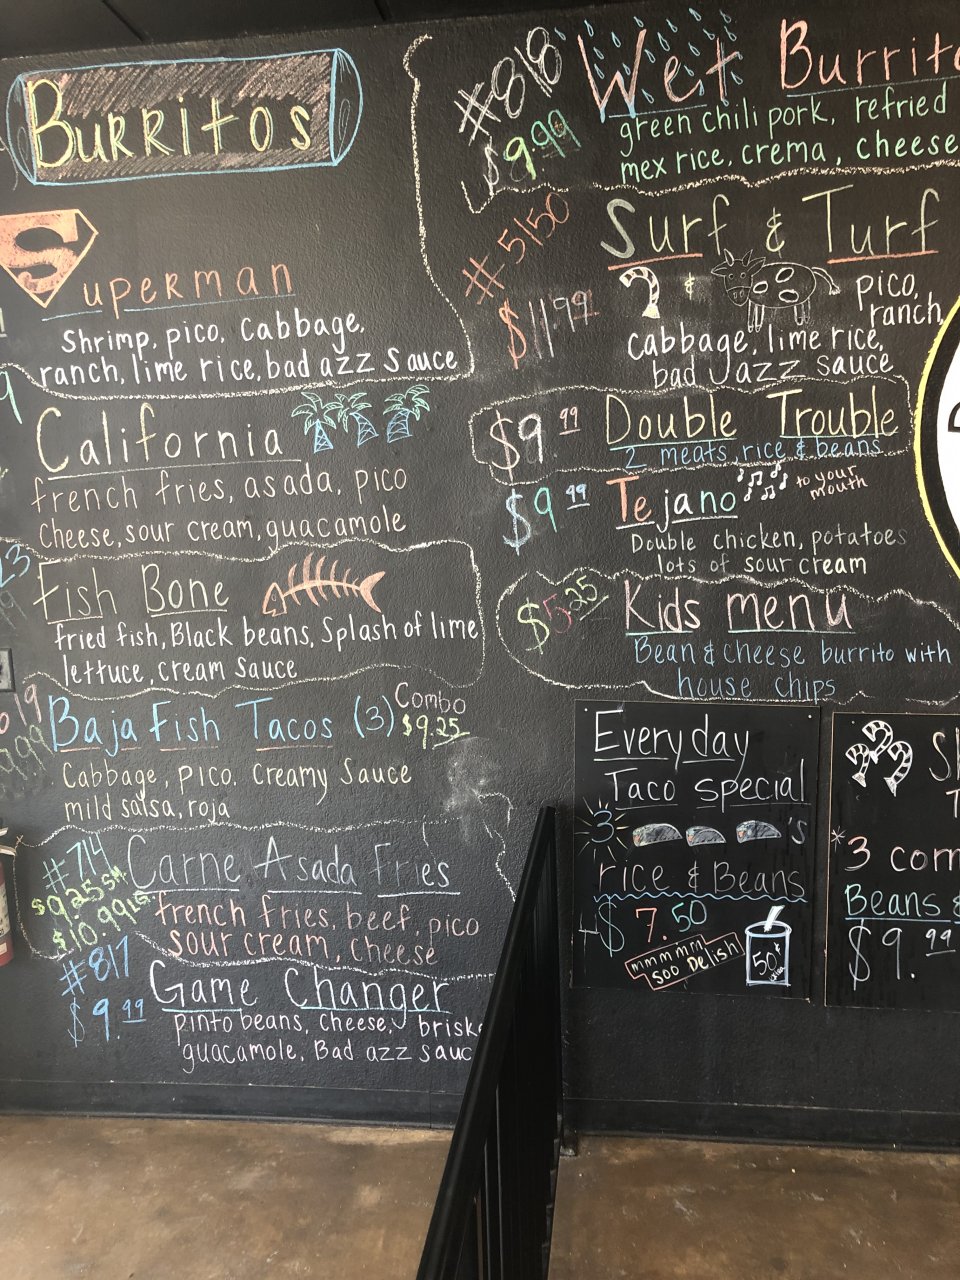 Burritos
Superman
shrimp, pico, cabbage,
ranch, lime rice, bad azz sauce
California
french fries, asada, pico
cheese, sour cream, guacamole
Fish Bone
fried fish, Black beans, Splash of lime
lettuce, cream sauce
Baja Fish Tacos (3) Combo
$9.25
Cabbage, pico. creamy Sauce
mild salsa, roja
#714 Carne Asada Fries
$9.25 sm
$10.99 LG
french fries, beef, pico
sour cream, cheese
#817
$9.99
Game Changer
pinto beans, cheese,
guacamole, Bad azz
#818 Wet
$9.99
green chili pork, refried
mex rice, crema, cheese
#5150
$11.99
Surf & Turf
&
pico,
ranch,
cabbage, lime rice,
bad azz sauce
$9.99 Double Trouble
2 meats, rice & beans
$9.99 Tejano to your
mouth
Double chicken, potatoes
lots of sour cream
$5.25 Kids menu
Bean & cheese burrito with
house chips
Everyday
Taco special
3 's
rice & Beans
$7.50
mmmmm
soo Delish
50¢
*3
Beans
$9.99